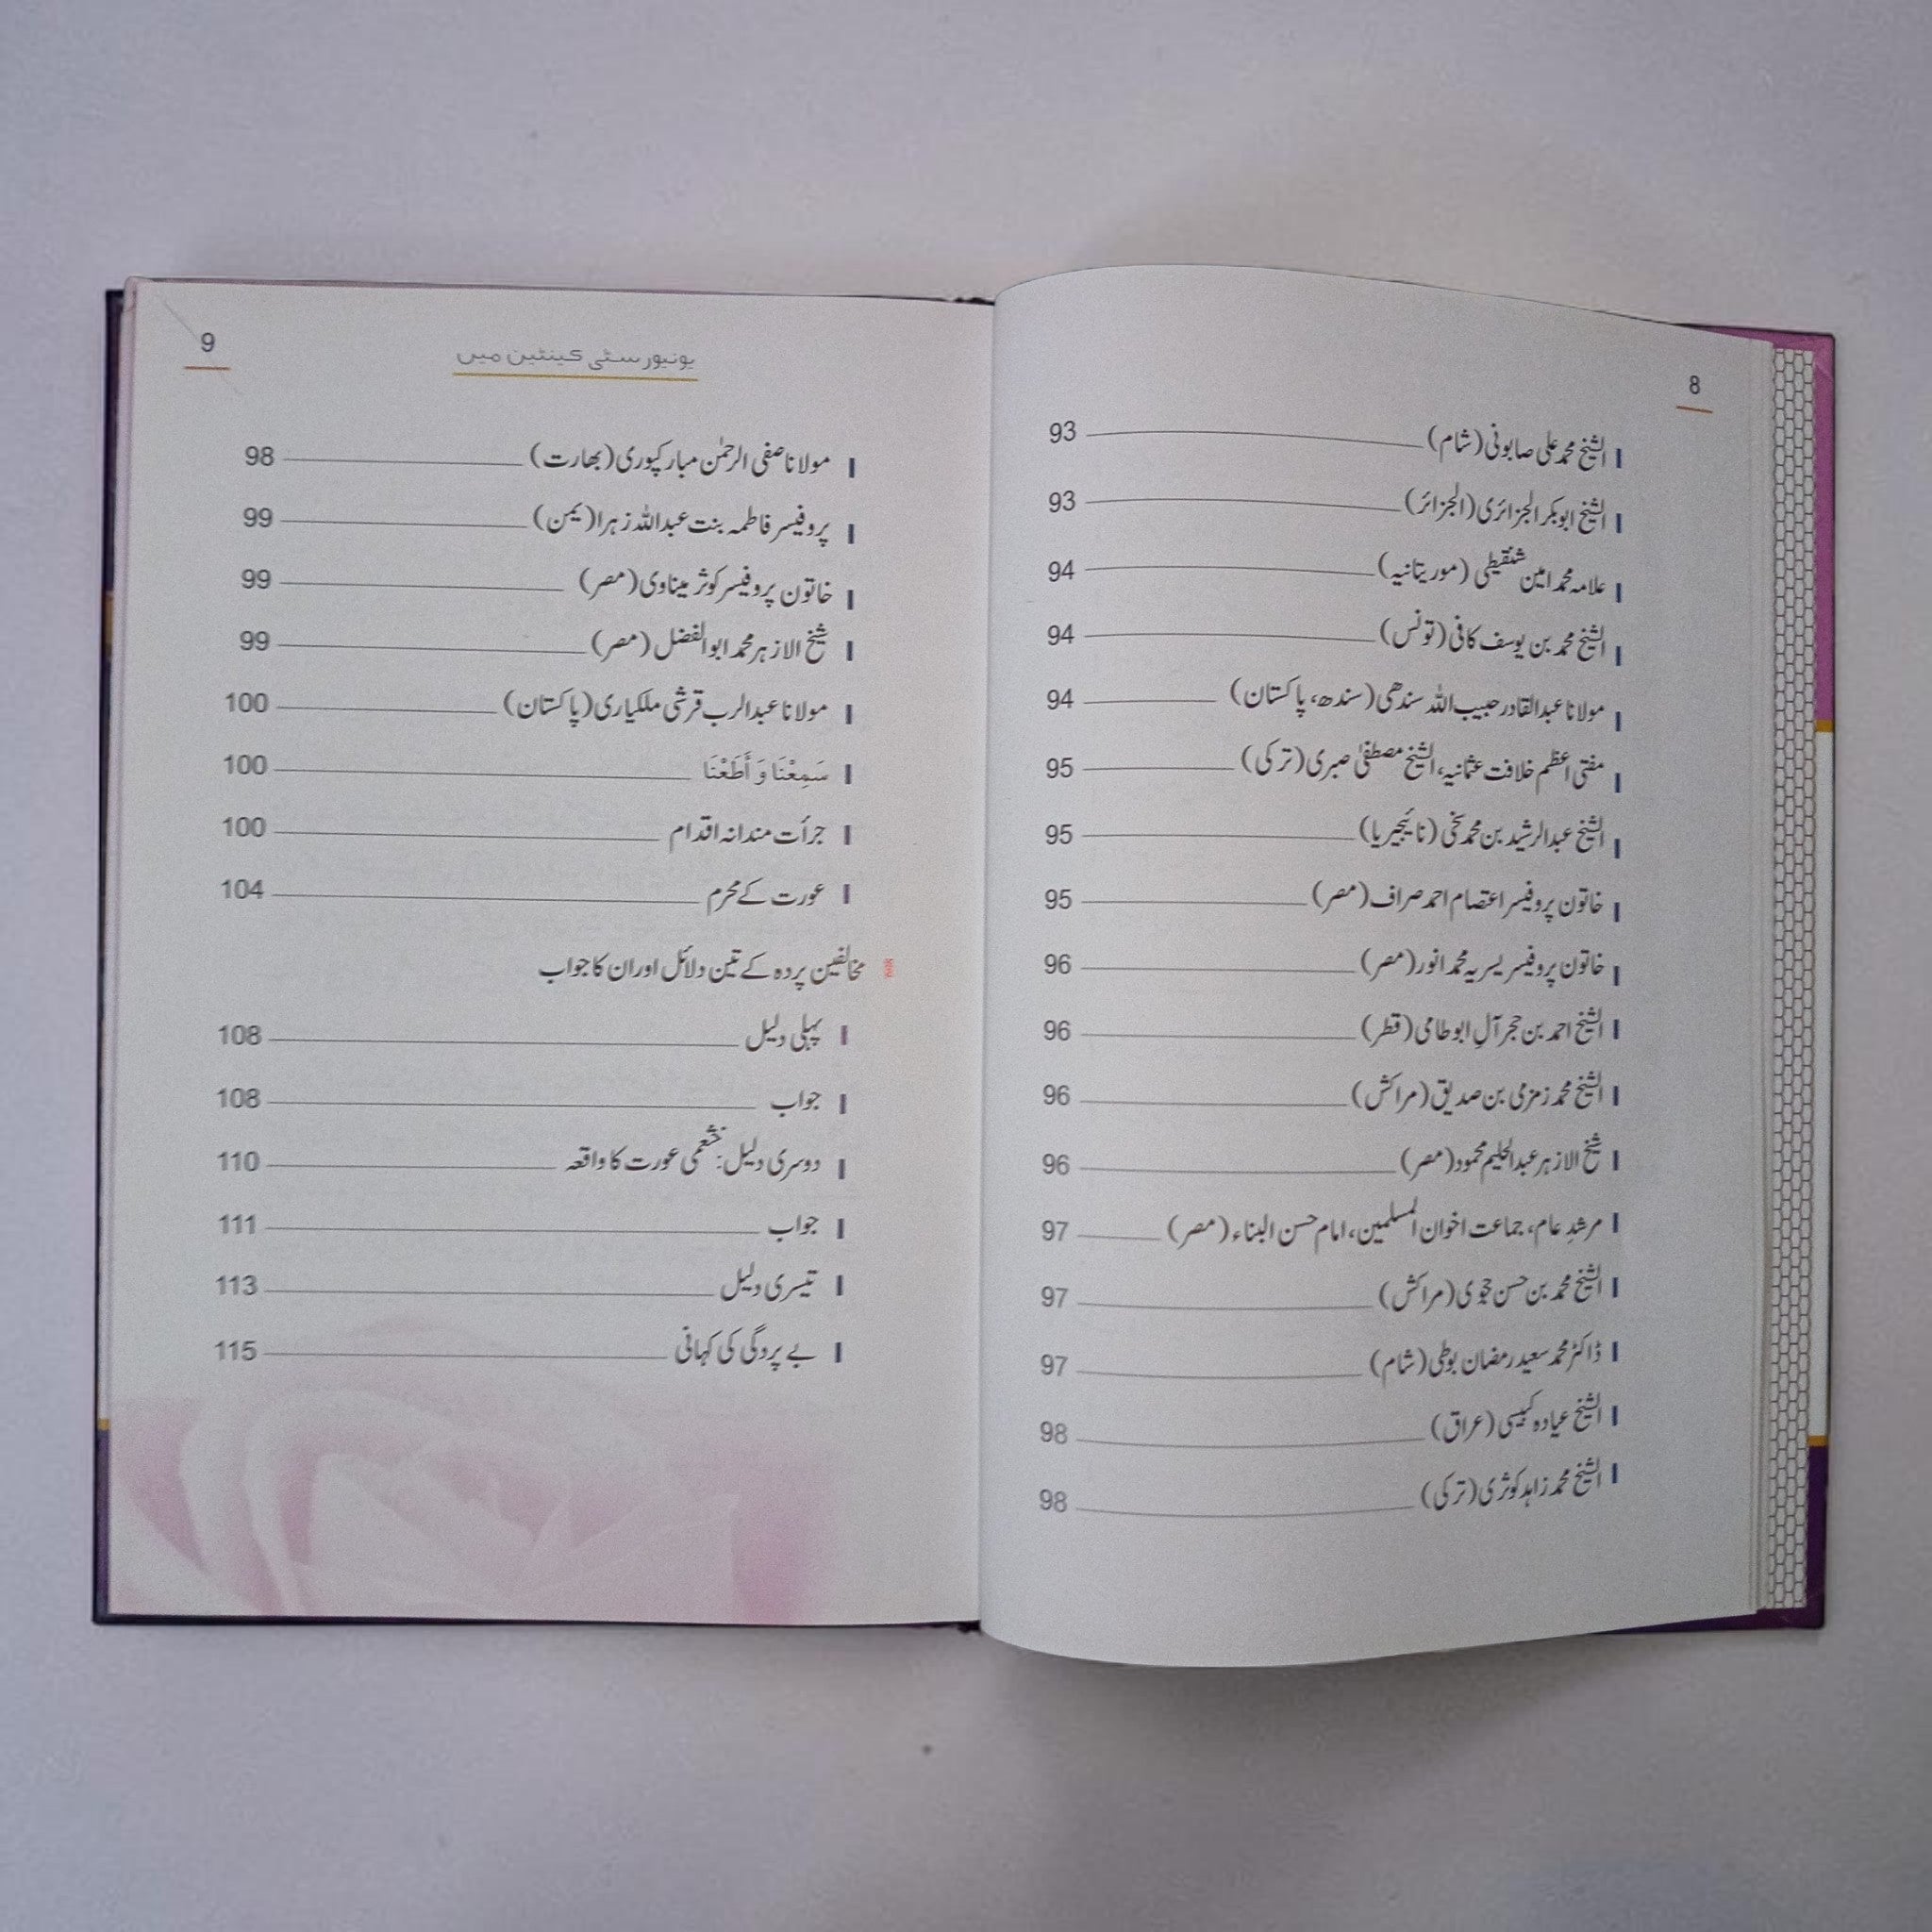 8
الشیخ محمد علی صابونی (شام) 93
الشیخ ابوبکر الجزائری (الجزائر) 93
علامہ محمد امین شنقیطی (موریتانیہ) 94
الشیخ محمد بن یوسف کافی (تونس) 94
مولانا عبدالقادر حبیب اللہ سندھی (سندھ، پاکستان) 94
مفتی اعظم خلافت عثمانیہ، الشیخ مصطفیٰ صبری (ترکی) 95
الشیخ عبدالرشید بن محمد سخی (نائیجیریا) 95
خاتون پروفیسر اعتصام احمد صراف (مصر) 95
خاتون پروفیسر یسریہ محمد انور (مصر) 96
الشیخ احمد بن حجر آلِ ابوطامی (قطر) 96
الشیخ محمد زمزمی بن صدیق (مراکش) 96
شیخ الازہر عبدالحلیم محمود (مصر) 96
مرشدِ عام، جماعت اخوان المسلمین، امام حسن البناء (مصر) 97
الشیخ محمد بن حسن حجوی (مراکش) 97
ڈاکٹر محمد سعید رمضان بوطی (شام) 97
الشیخ عیادہ کبیسی (عراق) 98
الشیخ محمد زاہد کوثری (ترکی) 98
یونیورسٹی کینٹین میں 9
مولانا صفی الرحمٰن مبارکپوری (بھارت) 98
پروفیسر فاطمہ بنت عبداللہ زہرا (یمن) 99
خاتون پروفیسر کوثر میناوی (مصر) 99
شیخ الازہر محمد ابوالفضل (مصر) 99
مولانا عبدالرب قرشی ملکیاری (پاکستان) 100
سَمِعْنَا وَ أَطَعْنَا 100
جرأت مندانہ اقدام 100
عورت کے محرم 104
مخالفین پردہ کے تین دلائل اور ان کا جواب
پہلی دلیل 108
جواب 108
دوسری دلیل: خثعمی عورت کا واقعہ 110
جواب 111
تیسری دلیل 113
بے پردگی کی کہانی 115